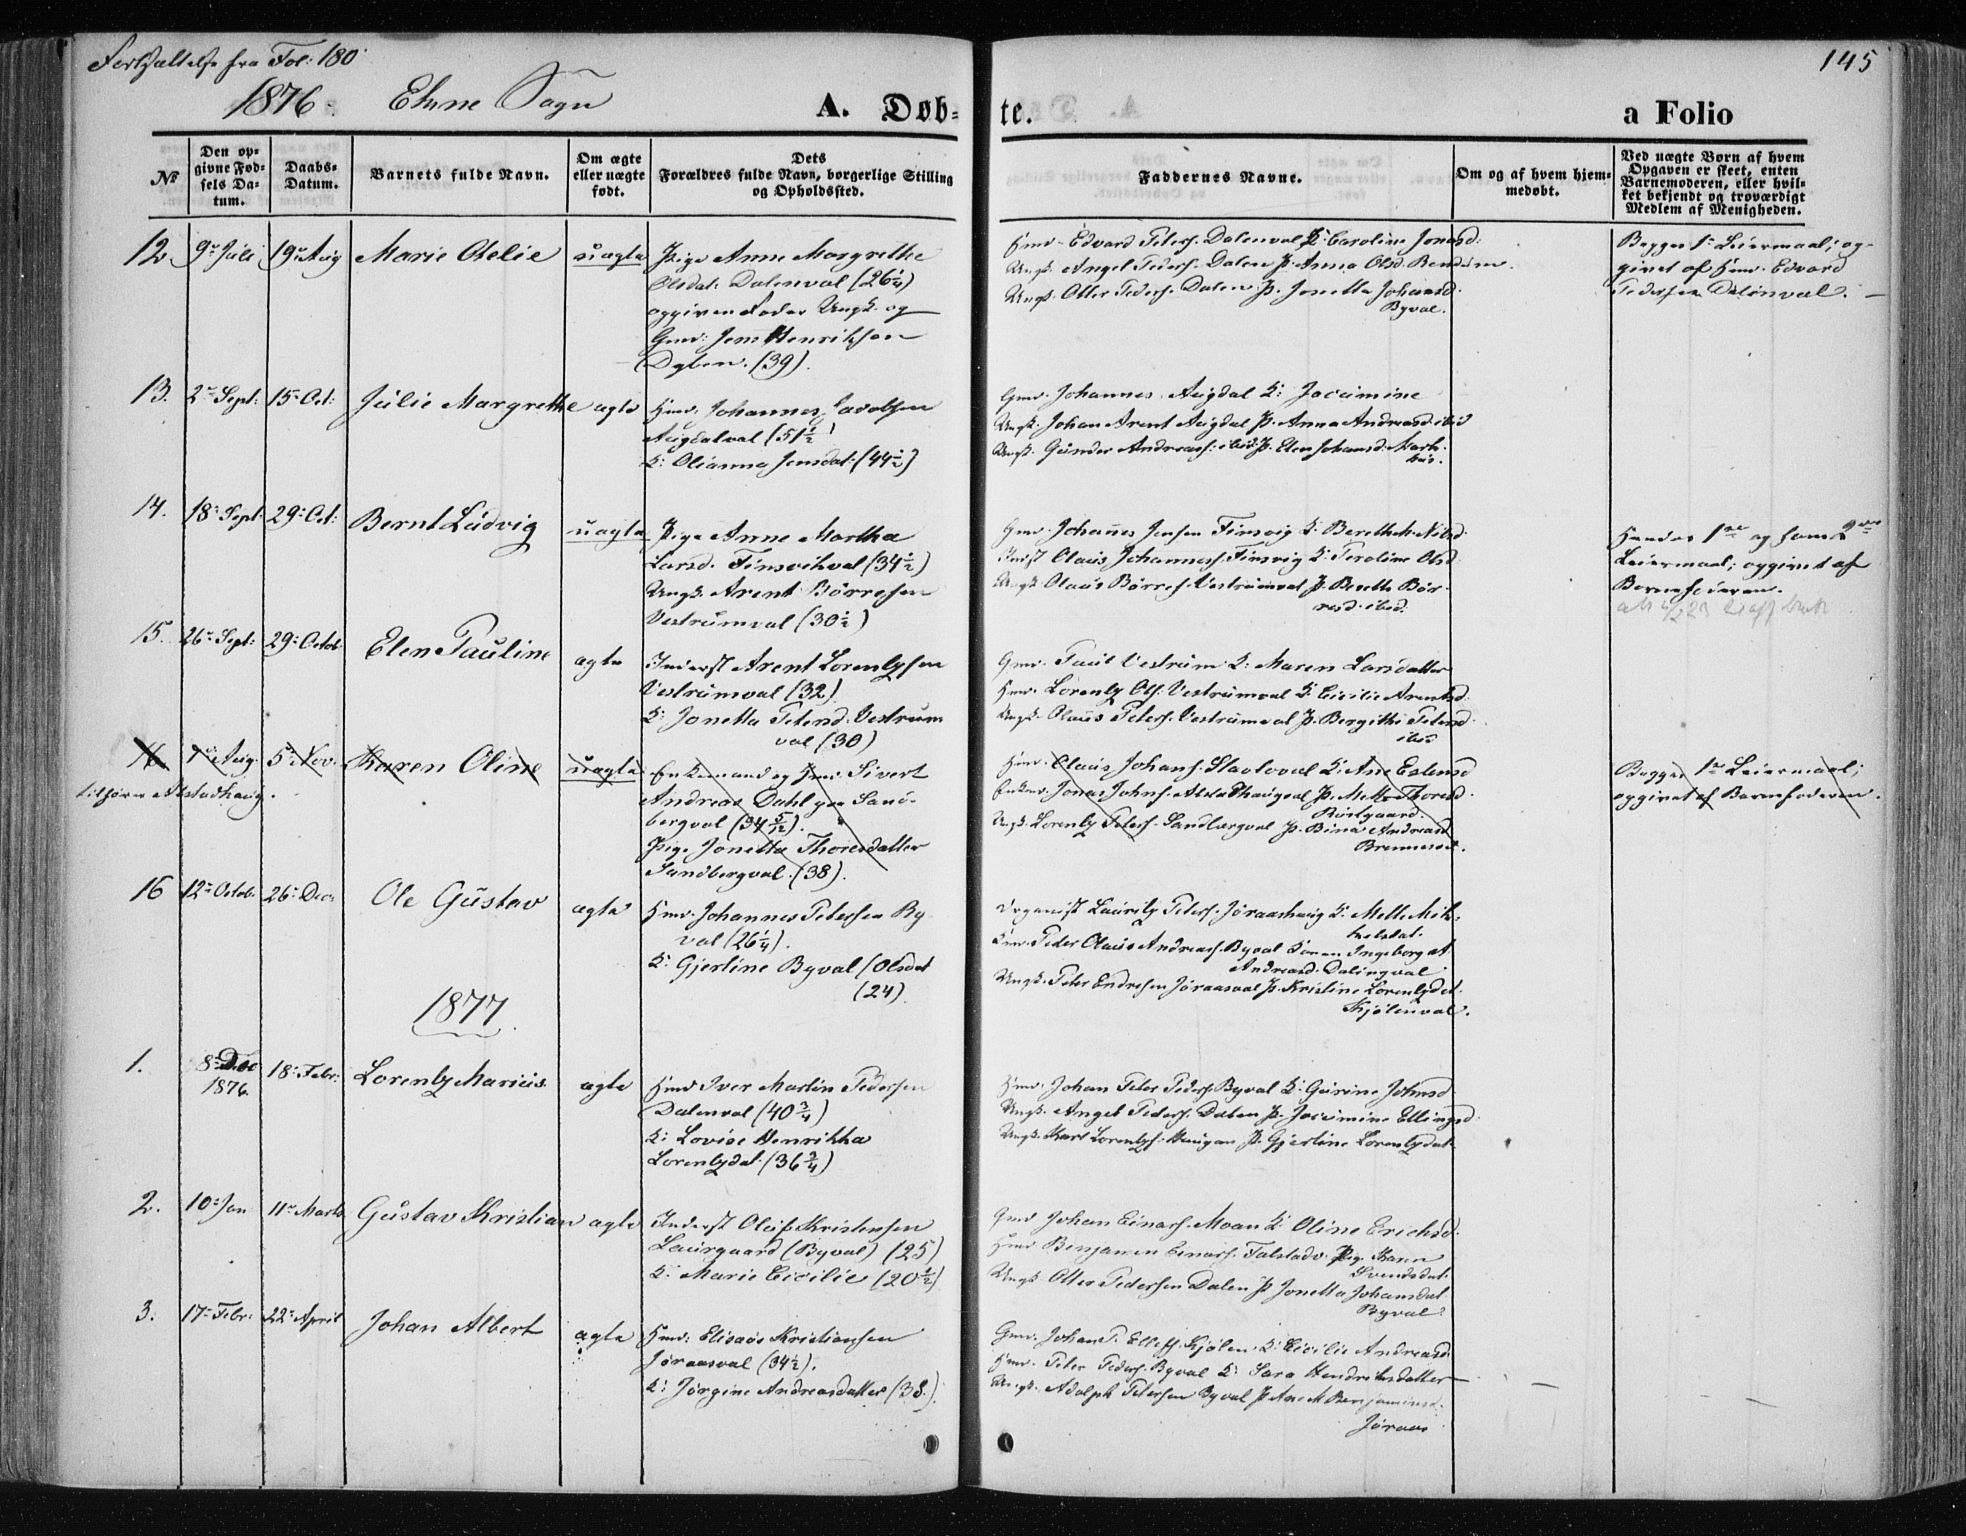 Fortsættelse fra Fol: 180
145
1876. Ekne Sogn
A. Døb=
te.
a Folio
No
Den op=
givne Fød=
sels Da=
tum.
Daabs=
Datum.
Barnets fulde Navn.
Om ægte
eller uægte
født.
Dets
Forældres fulde Navn, borgerlige Stilling
og Opholdssted.
Faddernes Navne.
Om og af hvem hjem=
medøbt.
Ved uægte Børn af hvem
Opgaven er skeet, enten
Barnemoderen, eller hvil=
ket bekjendt og troværdigt
Medlem af Menigheden.
12 9de Juli 19de Aug Marie Otelie uægte
Pige Anne Margrethe
Olsdat. Dalenval (26 1/4)
opgiven Fader Ungk. og
Gmd: Jens Henriksen
Dalen. (39).
Hmd. Edvard Peters. Dalenval K: Caroline Jonasd:
Ungk. Angel Peders. Dalen P. Anna Olsd.
Ungk. Otter Peders. Dalen P. Jonetta Johansd.
Byval.
Begges 1ste Leiermaal; op-
givet af Hmd. Edvard
Pedersen Dalenval.
13. 2den Sept: 15de Oct: Julie Margrethe ægte
Hmd. Johannes Jacobsen
Augdalval (51 1/2)
K: Olianna Jensdat. (44 1/2)
Gmd. Johannes Augdal K: Jocumine
Ungk. Johan Arent Augdal P. Anna Andreasd. ibid
Ungk. Gunder Andreass. ibid. P. Elen Johansd.
14. 18de Sept. 29de Oct: Bernt Ludvig uægte
Pige Anne Martha
Larsd. Finsvikval (34 1/2)
Ungk. Arent Børresen
Vestrumval (30 1/2)
Gmd. Johannes Jensen Finsvig K:
Inderst Olaus Johanness. Finsvig K: Peroline Olsd
Ungk. Olaus Børres. Vestrumval P. Berethe Bør-
resd. ibid.
Hendes 1ste og hans 2det
Leiermaal; opgivet af
Barnefaderen.
15. 26de Sept: 29de Octob Elen Pauline ægte
Inderst Arent Lorentzsen
Vestrumval (32)
K: Jonetta Petersd. Vestrum
val (30)
Gmd. Paul Vestrum K: Maren Larsdatter
Hmd. Lorentz Ols. Vestrumval K: Cicilie Arentsd.
Ungk. Olaus Peters. Vestrumval P. Bergitte Petersd.
ibid
16 7de Aug. 5te Nov. Karen Oline uægte
tilhører Alstadhaug.
Enkemand og Hmd. Sivert
Andreas Dahl paa Sand-
bergval (34 5/12).
Pige Jonetta Thoresdatter
Sandbergval. (38).
Hmd. Olaus Johans. K: Ane Estensd
Enkm. Jonas Johns. Alstadhaugval P. Mette Thoresd.
Ungk. Lorentz Peters. Sandbergval P. Bina Andreasd
Begges 1ste Leiermaal;
opgivet af Barnefaderen.
16 12te Octob. 26de Dec. Ole Gustav ægte
Hmd. Johannes Petersen By-
val (26 1/4).
K: Gjertine Byval (Olsdat
(24).
Organist Lauritz Peters. Jøraashaug K: Mette Mik=
kelsdat.
Hmd. Peder Olaus Andreass. Byval Konen Ingeborg A.
Andreasd. Dalingval
Ungk. Peter Endresen Jøraasval P. Kristine Lorentzdat.
Kjølenval.
1877.
1. 8de Dec 18de Febr. Lorentz Marius ægte
1876.
Hmd Iver Martin Pedersen
Dalenval (40 3/4)
K: Lovise Henrikka
Lorentzdat. (36 3/4)
Hmd. Johan Peter Peders. Byval K: Gurine Johnsd
Ungk. Angel Peders. Dalen P. Jocumine Ellingsd.
Ungk. Karl Lorentzs. Haugan P. Gjertine Lorentzdat.
2. 10de Jan 11te Marts Gustav Kristian ægte
Inderst Oluf Kristensen
Laurgaard (Byval) (25)
K. Marie Cicilie (20 1/2)
Gmd Johan Einars. Moan K: Oline Erichsd.
Hmd Benjamin Einars. Falstadv. Pige Karen
Svendsdat.
Ungk. Otter Pedersen Dalen P. Jonetta Johansdat
Byval.
3. 17de Febr. 22de April Johan Albert ægte
Hmd: Elisæus Kristiansen
Jøraasval (34 1/2).
K: Jørgine Andreasdatter (38.)
Gmd. Johan P. Ellefs. Kjølen. K: Cicilie Andreasd.
Hmd. Peter Peders. Byval K: Sara Hendriksdatter
Ungk. Adolph Petersen Byval P. Ane M Benjaminsd.
Jøraas